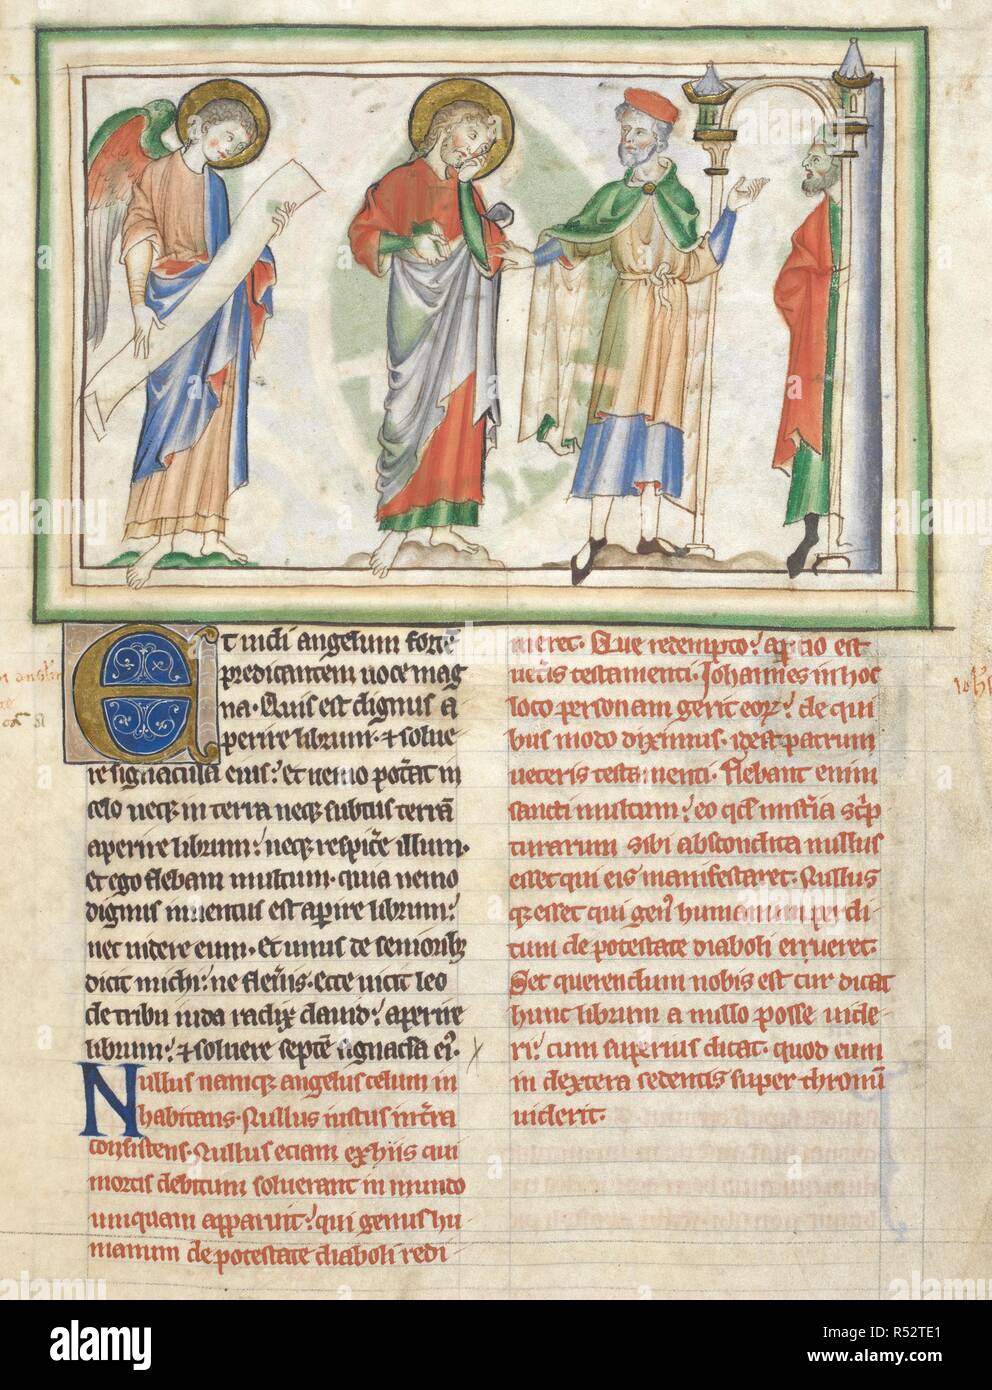 Et uidi angelum forte͂
predicantem uoce mag
na. Quis est dignus a
perire librum. ⁊ solue
re signacula eius? et nemo pot̾at in
celo neqꝫ in terra neqꝫ subtus terrā
aperire librum? neqꝫ respic̾e illum.
et ego flebam multum. quia nemo
dignus inuentus est aperire librum?
nec uidere eum. Et unus de seniorib᷒
dicit michi? ne fleu̾is. ecce uicit leo
de tribu iuda radix dauid? aperire
librum? ⁊ soluere septē signac̄la ei᷒.
Nullus namqꝫ angelus celum in
habitans. Nullus iustus int̾ra
consistens. Nullus eciam ex hiis qui
mortis debitum soluerant in mundo
umquam apparuit? qui genus hu
manum de potestate diaboli redi
meret. Que redempto? apc̄io est
uet̾is testamenti. Johannes in hoc
loco personam gerit eoꝝ? de qui
bus modo diximus. id est patrum
ueteris testamenti. flebant enim
sancti multum? eo qd̄ mist̾ia sc̄p
turarum sibi abscondita nullus
esset qui eis manifestaret. Nullus
qꝫ esset qui gen᷒ humanum perdi
tum de potestate diaboli erueret.
Set querendum nobis est cur dicat
hunc librum a nullo posse uide
ri? cum superius dicat. quod eum
in dextera sedentis super thronū
uiderit.
alamy
Image ID: R52TE1
www.alamy.com